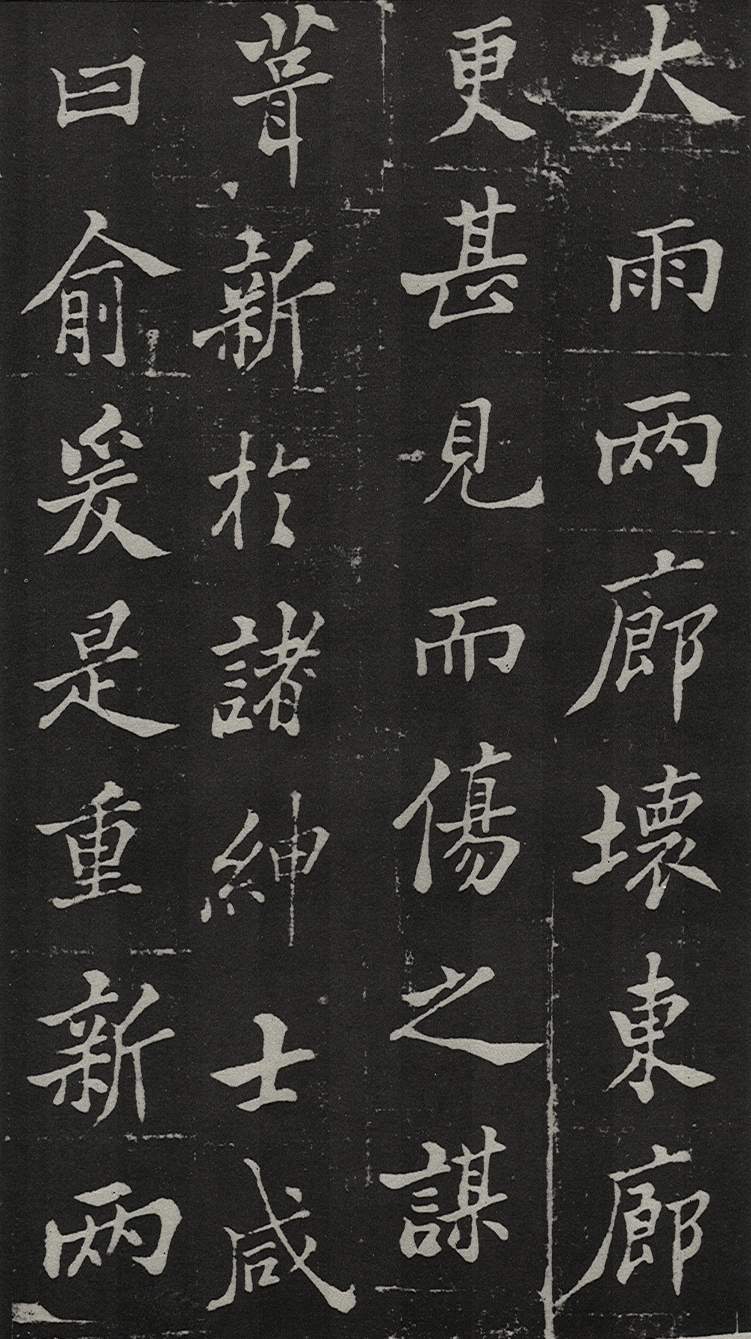 大雨兩廊壞東廊
更甚見而傷之謀
葺新於諸紳士咸
曰俞爰是重新兩